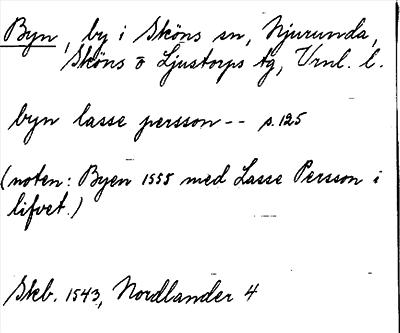 Byn, by i Sköns sn, Njurunda,
Sköns o Ljustorps tg, Vrnl. l.
byn lasse persson-- s.125
(noten: Byen 1555 med Lasse Persson i
lifvet.)
Skb. 1543, Nordlander 4